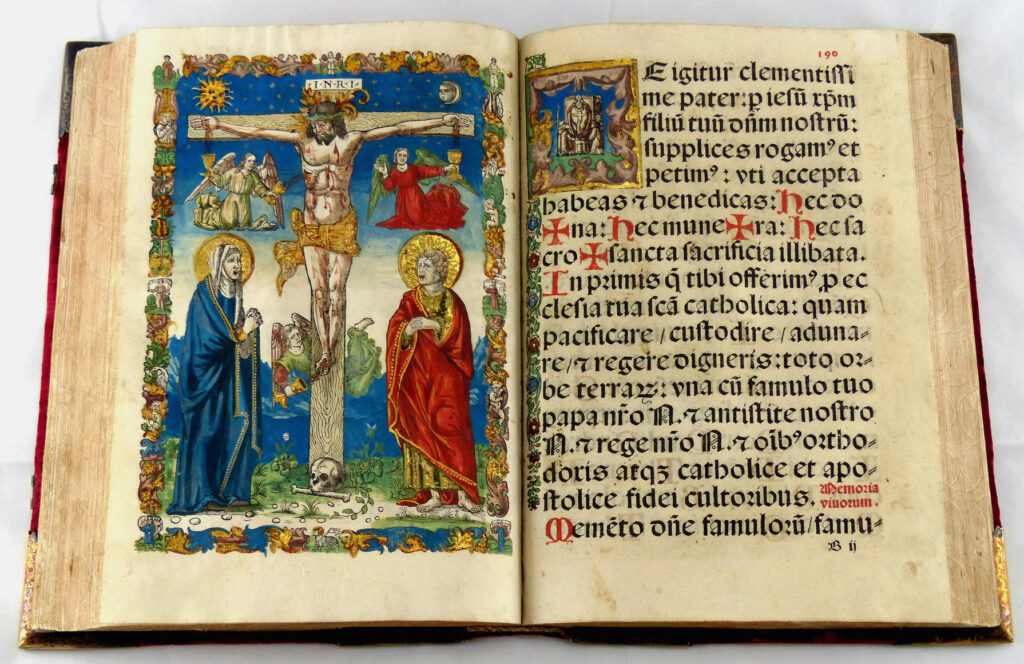 I·N·R·I
190
TE igitur clementissi
me pater: p iesū xp̄m
filiū tuū dn̄m nostrū:
supplices rogam⁹ et
petim⁹: vti accepta
habeas ⁊ benedicas: Hec do
✠na: Hec mune✠ra: Hec sa
cro✠sancta sacrificia illibata.
In primis q̄ tibi offerim⁹ p ec
clesia tua scā catholica: quam
pacificare/custodire/aduna-
re/⁊ regere digneris: toto or-
be terraꝝ: vna cū famulo tuo
papa nr̄o N. ⁊ antistite nostro
N. ⁊ rege nr̄o N. ⁊ oīb⁹ ortho-
doxis atqꝫ catholice et apo-
stolice fidei cultoribus. Memoria
viuorum.
Memēto dn̄e famulorū/famu-
B ij